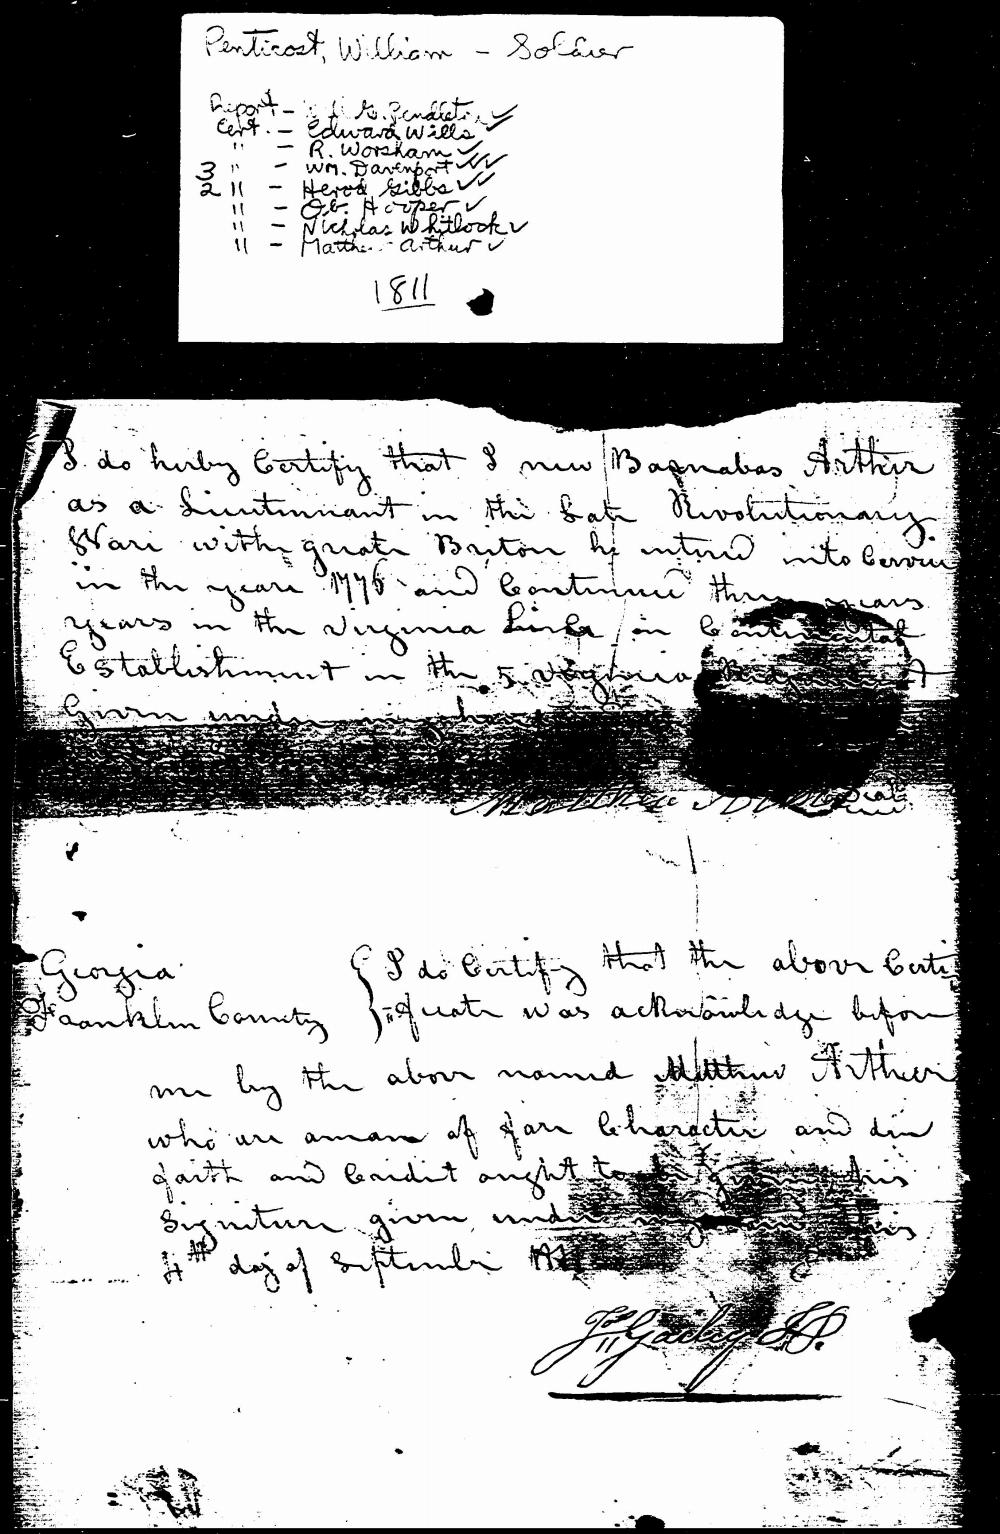 Penticost, William - Soldier
Report - G. Pendleton ✓
Cert. - Edward Wills ✓
" - R. Worsham ✓
3 " - Wm. Davenport ✓✓✓
2 " - Herod Gibbs ✓✓
" - Ob. Hooper ✓
" - Nicholas Whitlock ✓
" - Matthew Arthur ✓
1811
I do herby Certify that I new Barnabas Arthur
as a Lieutinnant in the Late Revolutionary
Ware with greate Briton he entred into Cervice
in the yeare 1776 and Continued three years
years in the virginia Line on Continental
Establishment in the 5 virginia Regiment
Given under my hand
Matthew Arthur Seal
Georgia
Franklin County
I do Certify that the above Certi
=ficate was acknowledge before
me by the above named Matthew Arthur
who are a man of fare Character and due
faith and Cridit ought to be given this
Signiture given under my hand this
4th day of September